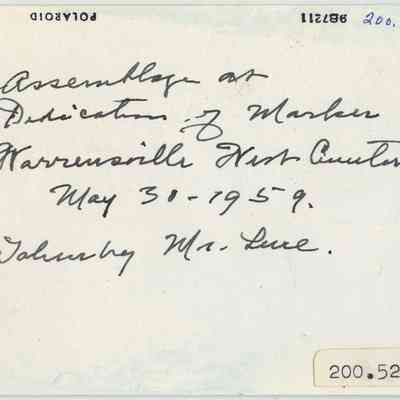 POLAROID 987211 200.
Assemblage at
Dedication of Marker
Warrensville West Cemeter
May 30-1959.
Taken by Mr. Luce.
200.52